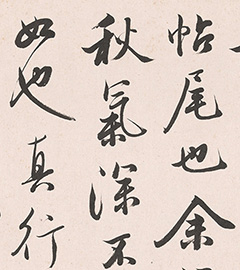 帖尾也余
秋氣深不
如也真行